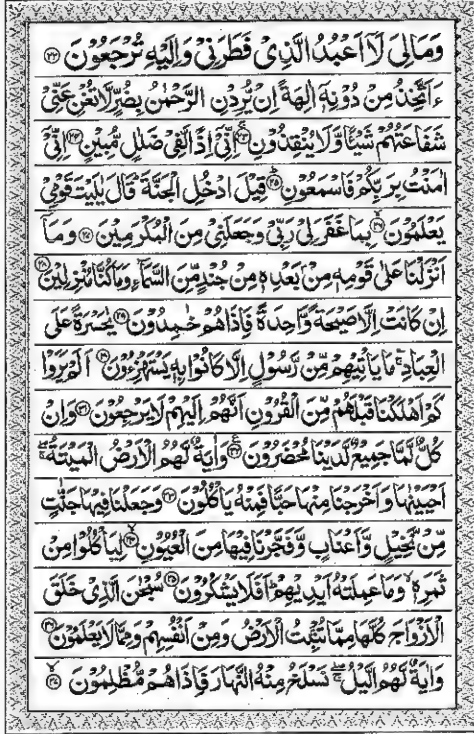 وَمَا لِیَ لَاۤ اَعۡبُدُ الَّذِیۡ فَطَرَنِیۡ وَاِلَیۡهِ تُرۡجَعُوۡنَ ﴿۲۲﴾
ءَاَتَّخِذُ مِنۡ دُوۡنِهٖۤ اٰلِهَةً اِنۡ یُّرِدۡنِ الرَّحۡمٰنُ بِضُرٍّ لَّا تُغۡنِ عَنِّیۡ
شَفَاعَتُهُمۡ شَیۡـًٔا وَّلَا یُنۡقِذُوۡنِ ﴿۲۳﴾ اِنِّیۡۤ اِذًا لَّفِیۡ ضَلٰلٍ مُّبِیۡنٍ ﴿۲۴﴾ اِنِّیۡۤ
اٰمَنۡتُ بِرَبِّكُمۡ فَاسۡمَعُوۡنِ ﴿۲۵﴾ قِیۡلَ ادۡخُلِ الۡجَنَّةَ ؕ قَالَ یٰلَیۡتَ قَوۡمِیۡ
یَعۡلَمُوۡنَ ﴿۲۶﴾ بِمَا غَفَرَ لِیۡ رَبِّیۡ وَجَعَلَنِیۡ مِنَ الۡمُكۡرَمِیۡنَ ﴿۲۷﴾ وَمَاۤ
اَنۡزَلۡنَا عَلٰی قَوۡمِهٖ مِنۡۢ بَعۡدِهٖ مِنۡ جُنۡدٍ مِّنَ السَّمَآءِ وَمَا كُنَّا مُنۡزِلِیۡنَ ﴿۲۸﴾
اِنۡ كَانَتۡ اِلَّا صَیۡحَةً وَّاحِدَةً فَاِذَا هُمۡ خٰمِدُوۡنَ ﴿۲۹﴾ یٰحَسۡرَةً عَلَی
الۡعِبَادِ ۚ مَا یَاۡتِیۡهِمۡ مِّنۡ رَّسُوۡلٍ اِلَّا كَانُوۡا بِهٖ یَسۡتَهۡزِءُوۡنَ ﴿۳۰﴾ اَلَمۡ یَرَوۡا
كَمۡ اَهۡلَكۡنَا قَبۡلَهُمۡ مِّنَ الۡقُرُوۡنِ اَنَّهُمۡ اِلَیۡهِمۡ لَا یَرۡجِعُوۡنَ ﴿۳۱﴾ وَاِنۡ
كُلٌّ لَّمَّا جَمِیۡعٌ لَّدَیۡنَا مُحۡضَرُوۡنَ ﴿۳۲﴾ وَاٰیَةٌ لَّهُمُ الۡاَرۡضُ الۡمَیۡتَةُ ۚ
اَحۡیَیۡنٰهَا وَاَخۡرَجۡنَا مِنۡهَا حَبًّا فَمِنۡهُ یَاۡكُلُوۡنَ ﴿۳۳﴾ وَجَعَلۡنَا فِیۡهَا جَنّٰتٍ
مِّنۡ نَّخِیۡلٍ وَّاَعۡنَابٍ وَّفَجَّرۡنَا فِیۡهَا مِنَ الۡعُیُوۡنِ ﴿۳۴﴾ لِیَاۡكُلُوۡا مِنۡ
ثَمَرِهٖ ۙ وَمَا عَمِلَتۡهُ اَیۡدِیۡهِمۡ ؕ اَفَلَا یَشۡكُرُوۡنَ ﴿۳۵﴾ سُبۡحٰنَ الَّذِیۡ خَلَقَ
الۡاَزۡوَاجَ كُلَّهَا مِمَّا تُنۡۢبِتُ الۡاَرۡضُ وَمِنۡ اَنۡفُسِهِمۡ وَمِمَّا لَا یَعۡلَمُوۡنَ ﴿۳۶﴾
وَاٰیَةٌ لَّهُمُ الَّیۡلُ ۚ نَسۡلَخُ مِنۡهُ النَّهَارَ فَاِذَا هُمۡ مُّظۡلِمُوۡنَ ﴿۳۷﴾